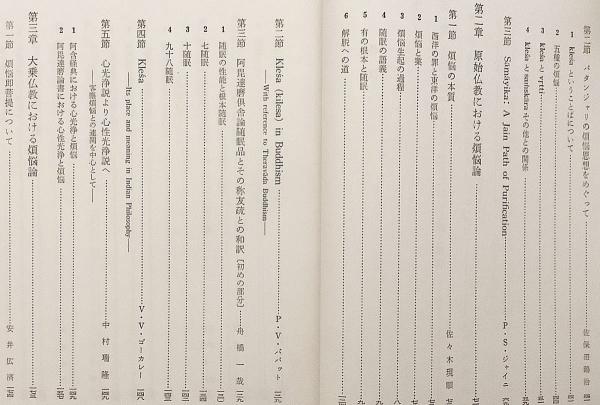 第二節 パタンジャリの煩悩思想をめぐって 佐保田鶴治
1 kleśa ということばについて
2 五種の煩悩
3 kleśa と vṛtti
4 kleśa と saṁskāra その他との関係
第三節 Sāmāyika: A Jain Path of Purification P・S・ジャイニ
第二章 原始仏教における煩悩論
第一節 煩悩の本質 佐々木現順
1 西洋の罪と東洋の煩悩
2 煩悩と業
3 煩悩生起の過程
4 随眠の語義
5 有の根本と随眠
6 解釈への道
第二節 Kleśa (kilesa) in Buddhism P・V・バパット
—With reference to Theravāda Buddhism—
第三節 阿毘達磨俱舎論随眠品とその称友疏との和訳〔初めの部分〕 舟橋一哉
1 随眠の性能と根本随眠
2 七随眠
3 十随眠
4 九十八随眠
第四節 Kleśa V・V・ゴーカレー
—Its place and meaning in Indian Philosophy—
第五節 心光浄説より心性光浄説へ 中村瑞隆
—客塵煩悩との連関を中心として—
1 阿含経典における心光浄と煩悩
2 阿毘達磨論書における心光浄と煩悩
第三章 大乗仏教における煩悩論
第一節 煩悩即菩提について 安井広済